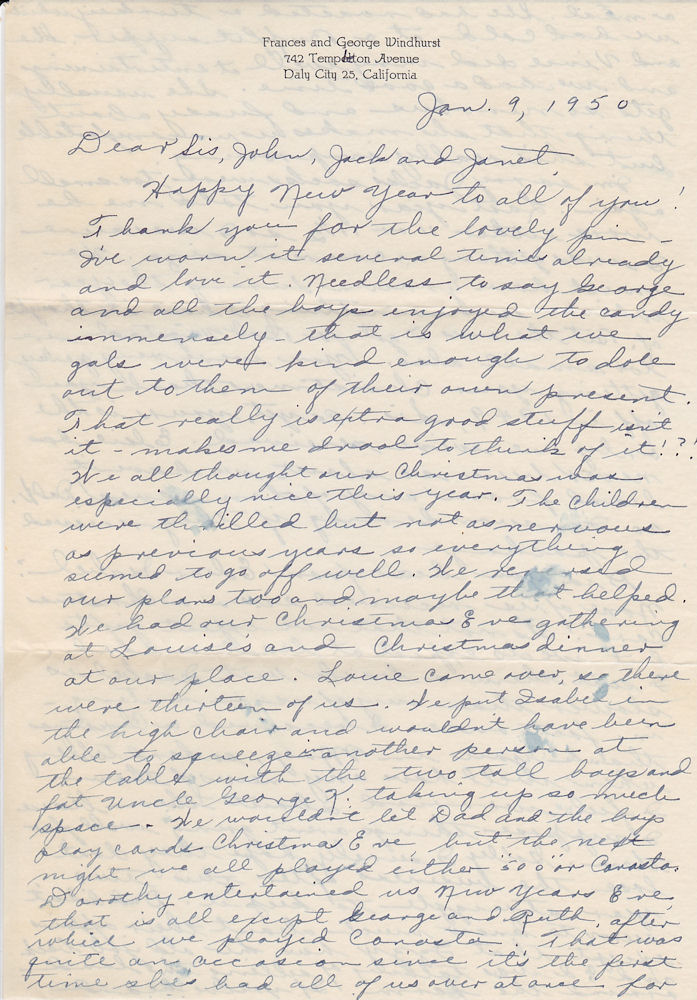 Frances and George Windhurst
742 Templeton Avenue
Daly City 25, California
Jan. 9, 1950
Dear Sis, John, Jack and Janet,
Happy New Year to all of you!
Thank you for the lovely pin -
I've worn it several times already
and love it. Needless to say George
and all the boys enjoyed the candy
immensely - that is what we
gals were kind enough to dole
out to them of their own present.
That really is extra good stuff isn't
it - makes me drool to think of it!?!
We all thought our Christmas was
especially nice this year. The children
were thrilled but not as nervous
as previous years so everything
seemed to go off well. We
our plans too and maybe that helped.
We had our Christmas Eve gathering
at Louise's and Christmas dinner
at our place. Louie came over, so there
were thirteen of us. We put Isabel in
the high chair and wouldn't have been
able to squeeze in another person at
the table with the two tall boys and
fat Uncle George K. taking up so much
space. We wouldn't let Dad and the boys
play cards Christmas Eve, but the next
night we all played either "500" or Canasta.
Dorothy entertained us New Years Eve,
that is all except George and Ruth, after
which we played Canasta. That was
quite an occasion since it's the first
time she's had all of us over at once for